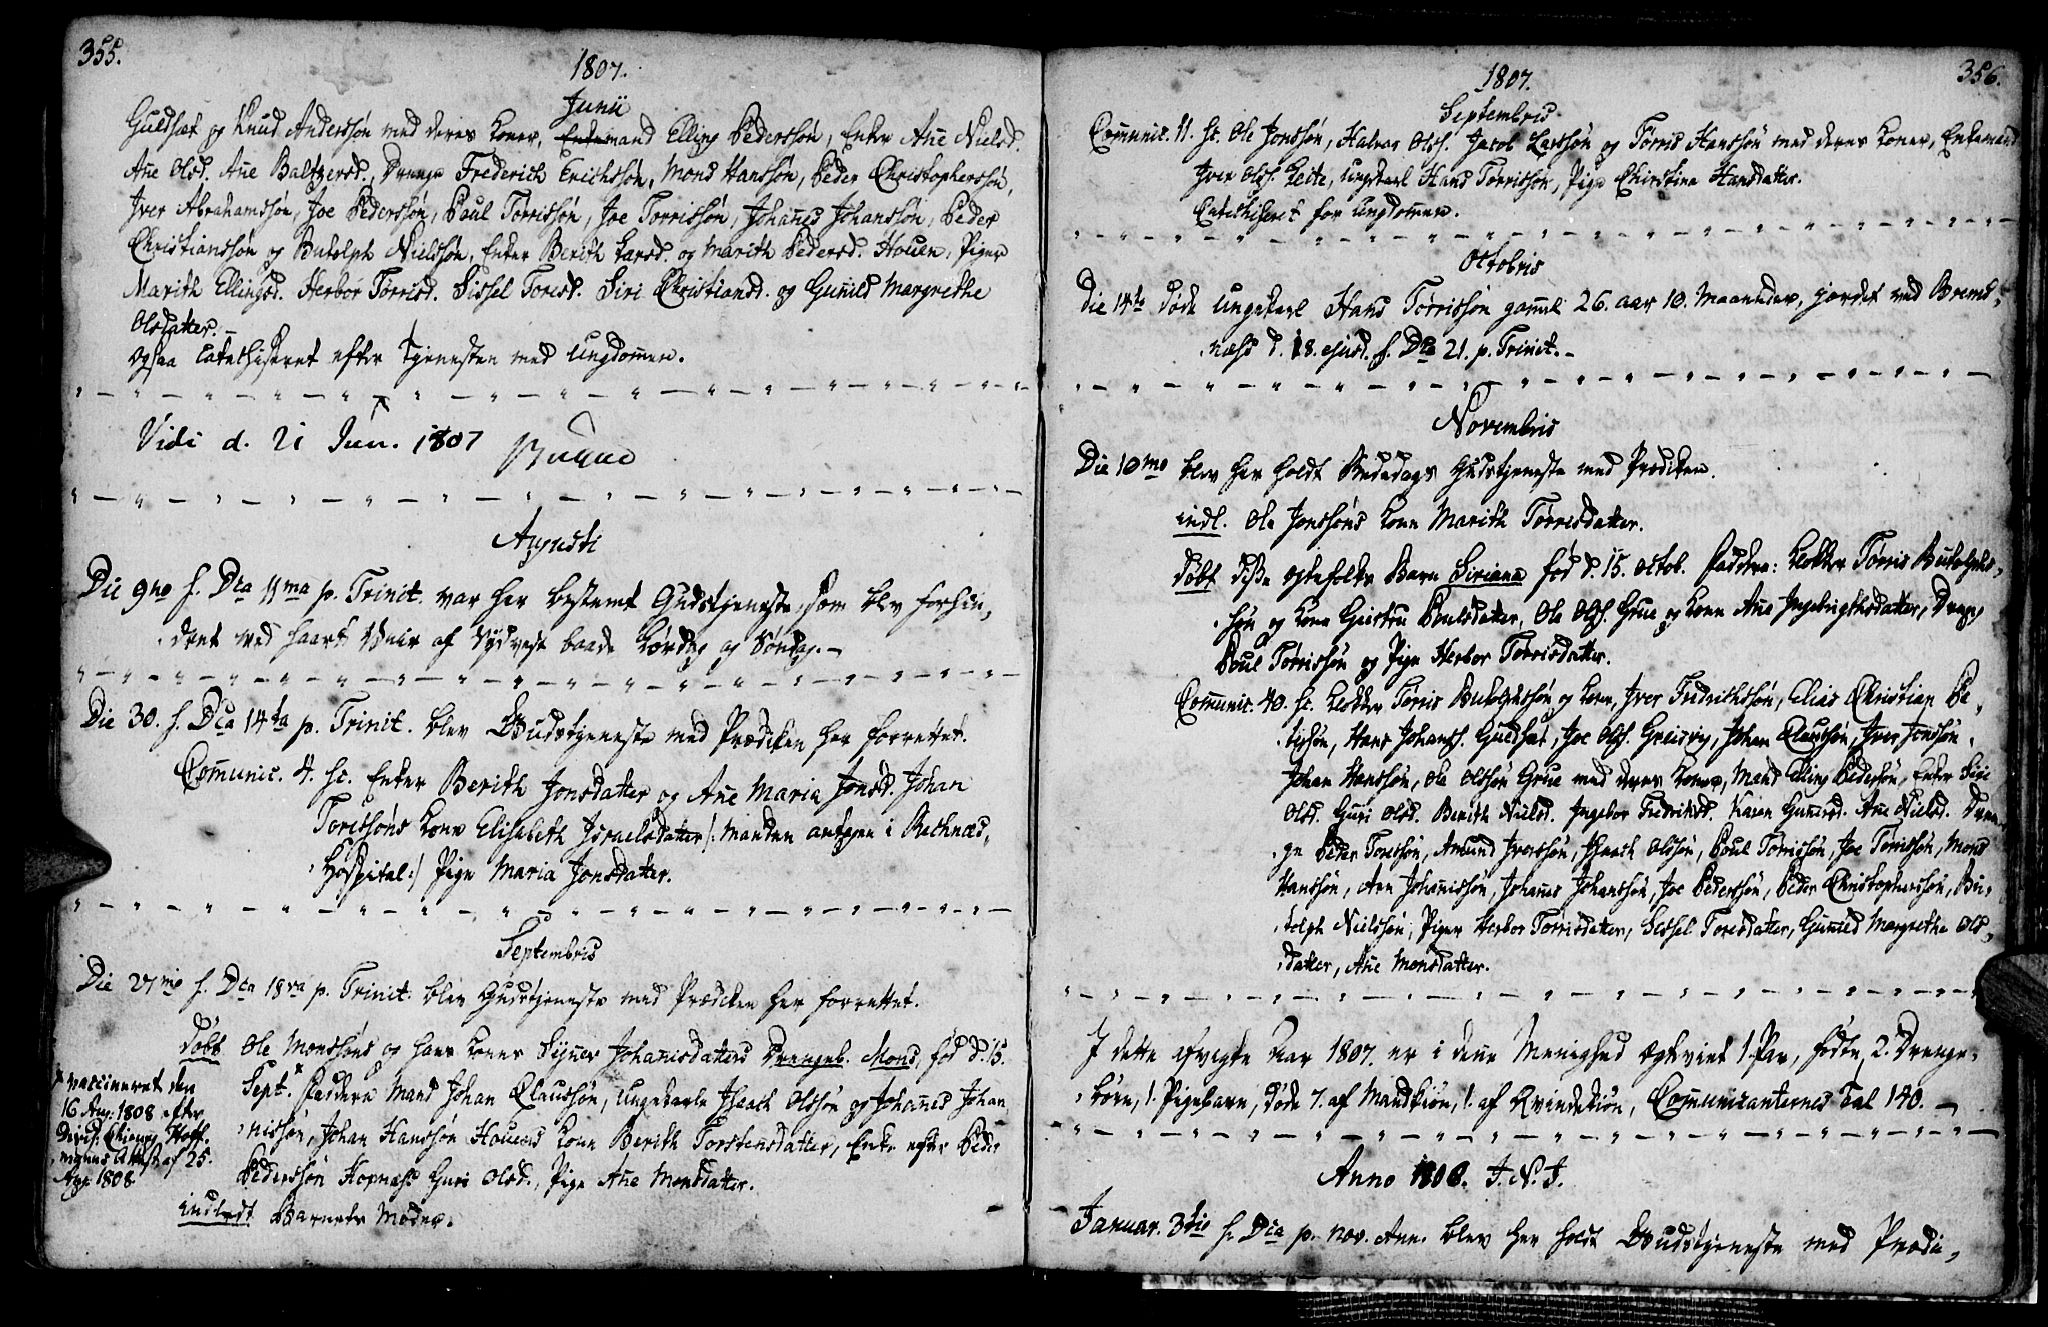 355.
1807.
Junii
Guldsæt og Knud Anderssøn med deres Koner, Enkemand Elling Pederssøn, Enker Ane Nielsd.
Ane Olsd. Ane Baltzersd., Drenge Frederich Erichssøn, Mons Hanssøn, Peder Christopherssøn,
Iver Abrahamssøn, Joe Pederssøn, Poul Tørrissøn, Joe Torrissøn, Johanes Johanssøn, Peder
Christianssøn og Butolph Nielssøn, Enker Berith Larsd. og Marith Pedersd. Houen, Piger
Marith Ellingsd. Herbor Tørrisd. Sissel Toresd. Siri Christiansd. og Gunild Margrethe
Olsdatter.
Ogsaa Catechiseret efter Tjenesten med Ungdomen.
Vidi d. 21 Jun. 1807 Bugge
Augusti
Die 9no f. Dca 11ma p. Trinit. var her bestemt Gudstjeneste, som blev forhin,
dret ved haart Veir af Sydvest baade Lørdag og Søndag.
Die 30. f. Dca 14ta p. Trinit. blev Gudstjeneste med Prædiken her forrettet.
Comunic. 4. sc. Enker Berith Jonsdatter og Ane Maria Jonsd. Johan
Toressøns Kone Elisabeth Israelsdatter /: Manden antagen i Rechnæs,
Hospital :/ Pige Maria Jonsdatter.
Septembris
Die 27mo f. Dca 18va p. Trinit. blev Gudstjeneste med Prædiken her forrettet.
Døbt Ole Monssøns og hans Kones Signer Johanisdatters Drengeb. Mons, fød d. 15.
Sept. Faddere Mand Johan Claussøn, Ungekarle Isaach Olssøn og Johanes Johan
nissøn, Johan Hanssøn Houens Kone Berith Torstensdatter, Enke efter Peder
Pederssøn Hopnæss Guri Olsd., Pige Ane Monsdatter.
vaccineret den
16 Aug. 1808 efter
Distr. Chirurg. Hoff-
manns Attest af 25.
Aug. 1808
indledt Barnets Moder.
356.
1807.
Septembris
Comunic. 11. sc. Ole Jonssøn, Halvor Olss. Jacob Larssøn og Tørris Hanssøn med deres Koner, Enkemand
Iver Olss. Leite, Ungkarl Hans Tørrissøn, Pige Christina Hansdatter.
Catechiseret for Ungdomen.
Octobris
Die 14de døde Ungekarl Hans Tørrissøn gamel 26. aar 10. Maaneder, jordet ved Brems,
næss d. 18. ejusd. f. Dca 21. p. Trinit.
Novembris
Die 10mo blev her holdt Bededags Gudstjeneste med Prædiken.
indl. Ole Jonssøns Kone Marith Tørresdatter.
døbt disse Egtefolks Barn Siriana fød d. 15. Octob. Faddere: Klokker Tørris Butolphs,
søn og Kone Gurtru Poulsdatter, Ole Olss. Grue og Kone Ane Ingebrigthsdatter, Dreng
Poul Tørrissøn og Pige Herbor Tørrisdatter.
Comunic. 40. sc. Klokker Tørris Butolphssøn og Kone, Iver Fredrichssøn, Elias Christian Pe,
terssøn, Hans Johanss. Guldsæt, Joe Olss. Greisvig, Johan Claussøn, Iver Jonssøn,
Johan Hanssøn, Ole Olssøn Grue med deres Koner, Mand Elling Pederssøn, Enker Sigi
Olsd. Guri Olsd. Berith Nielsd. Ingebor Fredriksd. Karen Gunersd. Ane Nielsd. Dren
ge Peder Toressøn, Amund Iverssøn, Isaach Olssøn, Poul Tørrissøn, Joe Tørrissøn, Mons
Hanssøn, Aen Johanissøn, Johanes Johanssøn, Joe Pederssøn, Peder Christopherssøn, Bu,
tolph Nielssøn, Piger Herbor Tørrisdatter, Sissel Toresdatter, Gunild Margrethe Ols,
datter, Ane Monsdatter.
I dette afvigte Aar 1807. er i dene Menighed Egteviet 1. Par, fødte, 2. Drenge,
børn, 1. Pigebarn, døde 7. af Mandkiøn, 1. af Qvindekiøn, Comunicanternes Tal 140.
Anno 1808. I. N. J.
Januar. 3tio f. Dca p. nov. Ann. blev her holdt Gudstjeneste med Prædi,